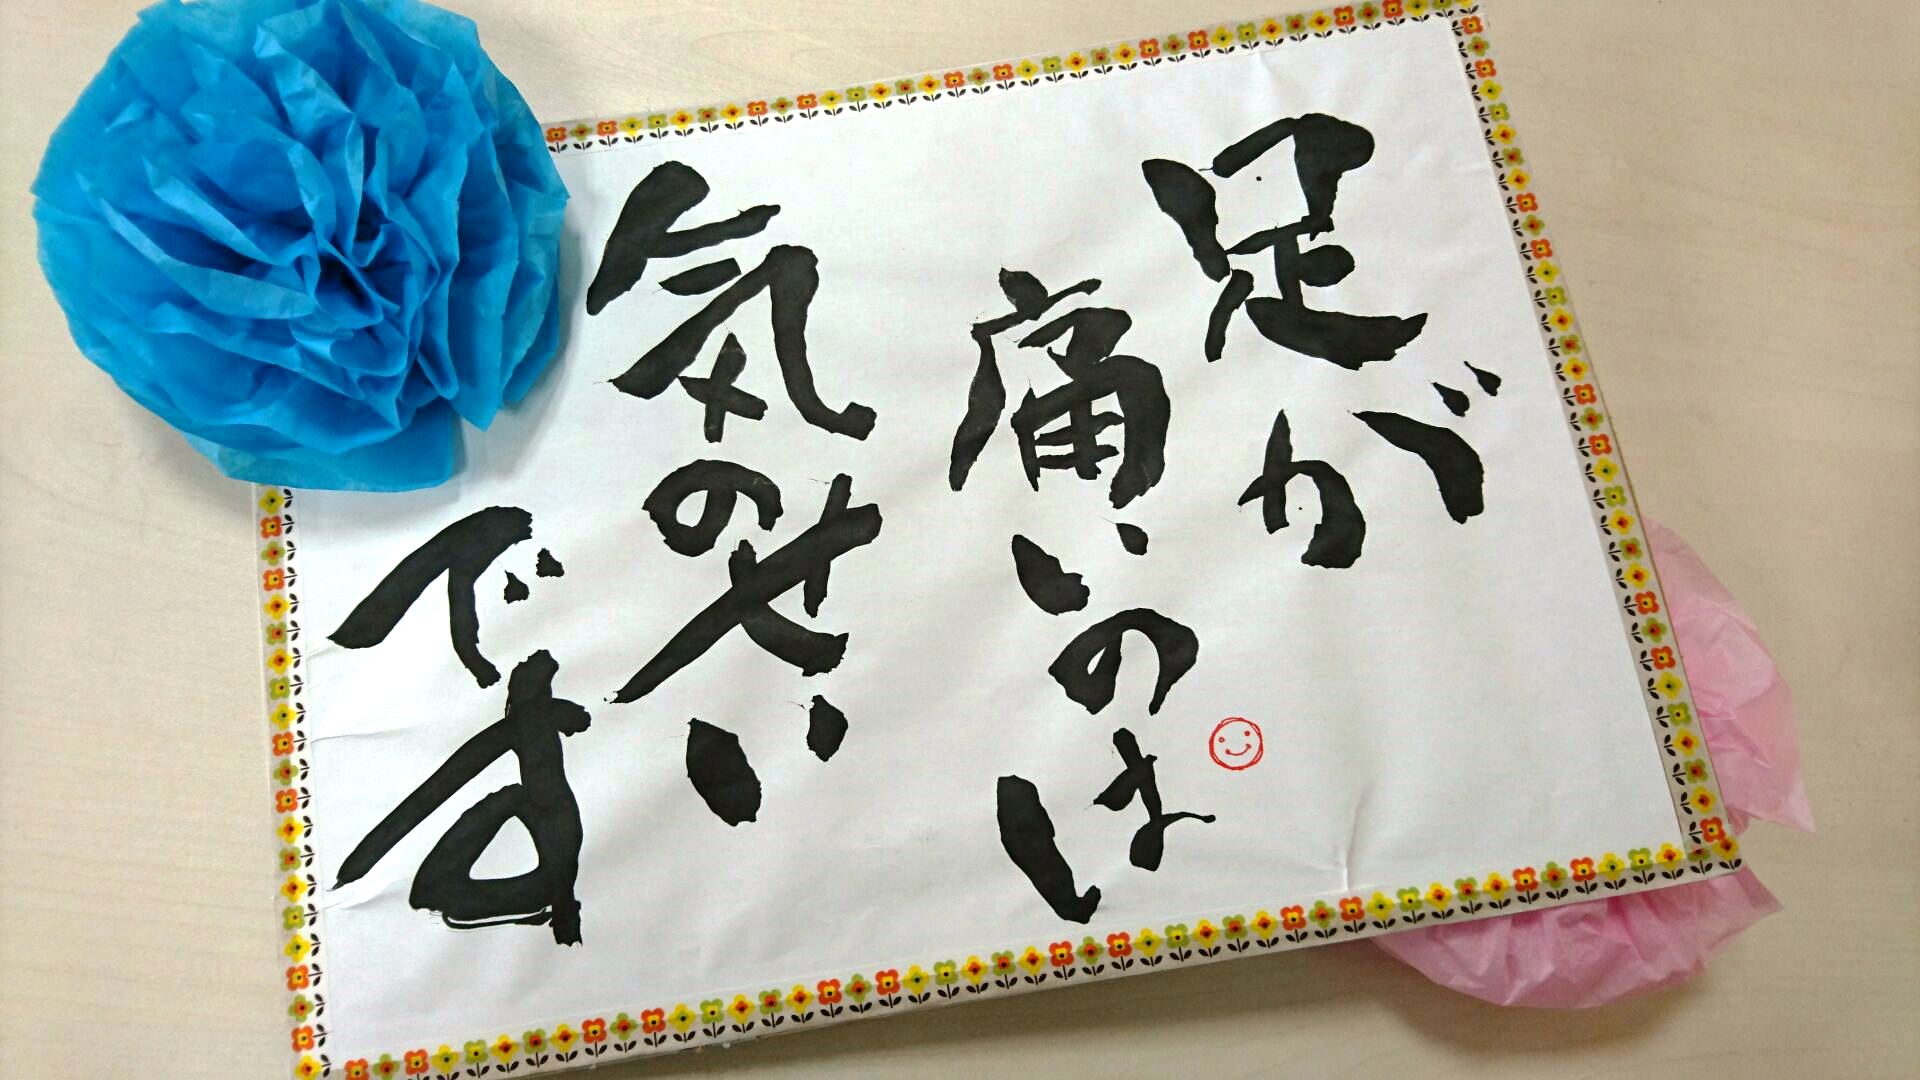 足が
痛いのは
気のせい
です